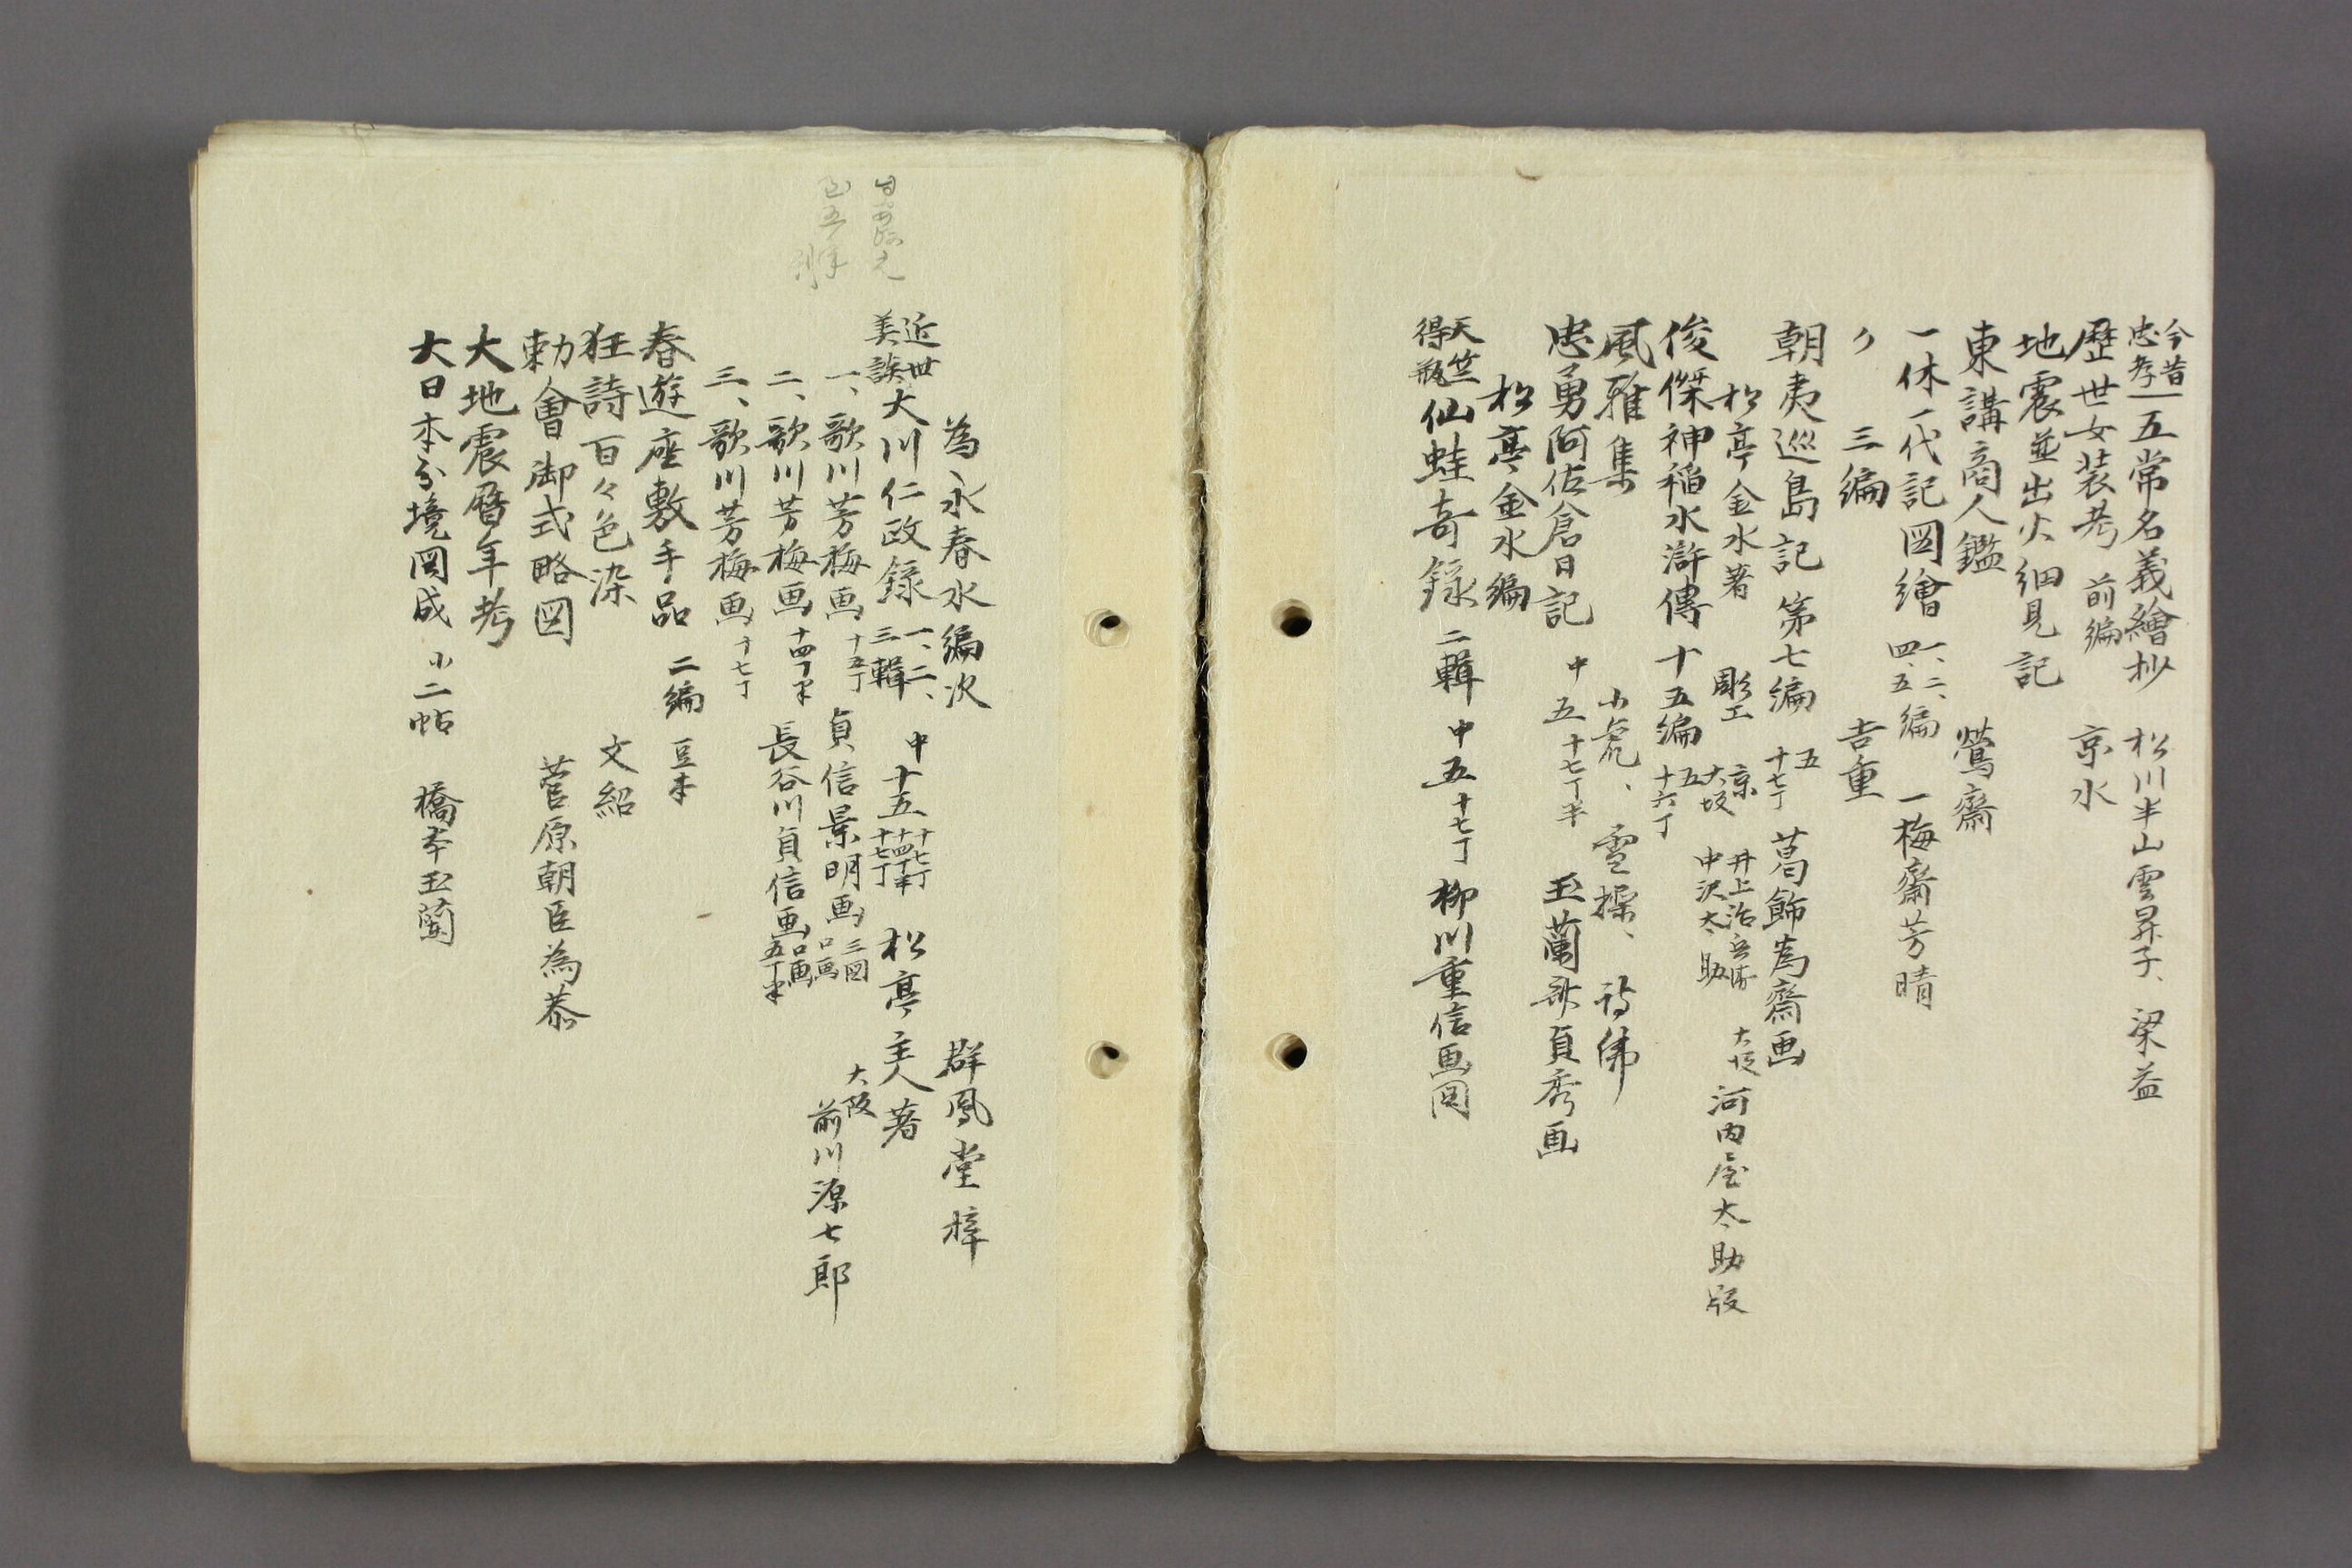 今昔忠孝五常名義繪抄　松川半山雲昇子、梁益
歴世女装考　前編　京水
地震並出火細見記
東講商人鑑　鶯齋
一休一代記図繪　一、二、四、五、編　一梅齋芳晴
〃　三編　吉重
朝夷巡島記　第七編　五　十七丁　葛飾為齋画
松亭金水著　彫工　京　井上治兵衛　大坂　中沢太助　大坂　河内屋太助版
俊傑神稲水滸傳　十五編　五　十六丁
風雅集　小虎、雪操、詩佛
忠勇阿佐倉日記　中五　十七丁半　玉蘭斎貞秀画
松亭金水編
天竺得瓶仙蛙奇録　二輯　中五　十七丁　柳川重信画図
為永春水編次　群鳳堂梓
近世美談大川仁政録　一、二、三輯　中十五　十七丁　十四丁半　十七丁　松亭主人著
一、歌川芳梅画　十五丁　貞信景明画　三図　口画　大阪　前川源七郎
二、歌川芳梅画　十四丁半　長谷川貞信画　口画　五丁半
三、歌川芳梅画　十七丁
春遊座敷手品　二編　豆本
狂詩百々色染　文紹
勅會御式略図　菅原朝臣為恭
大地震暦年考
大日本分境図成　小二帖　橋本玉蘭